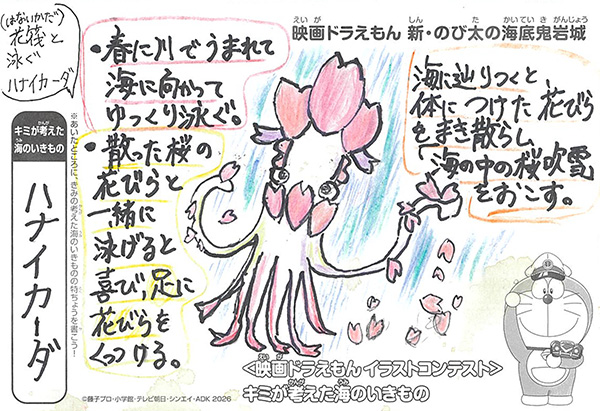 (はないかだ)
花筏と
泳ぐ
ハナイカーダ
・春に川でうまれて
海に向かって
ゆっくり泳ぐ。
・散った桜の
花びらと
一緒に
泳げると
喜び、足に
花びらを
くっつける。
映画ドラえもん 新・のび太の海底鬼岩城
海に辿りつくと
体につけた花びら
をまき散らし
「海の中の桜吹雪
をおこす。
キミが考えた
海のいきもの
ハナイカーダ
※あいたところに、きみの考えた海のいきものの特ちょうを書こう！
<映画ドラえもん イラストコンテスト>
キミが考えた海のいきもの
©藤子プロ・小学館・テレビ朝日・シンエイ・ADK 2026